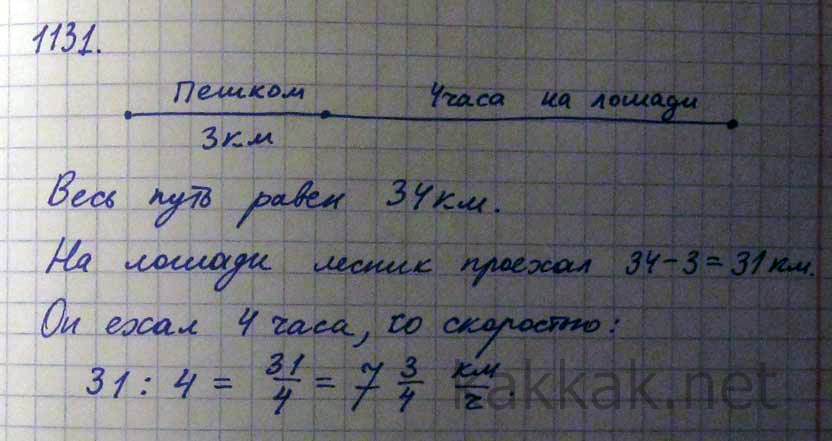 1131.
Пешком 4часа на лошади
3км
Весь путь равен 34км.
На лошади лесник проехал 34-3=31км.
Он ехал 4 часа, со скоростью:
31 : 4 = 31/4 = 7 3/4 км/ч.
kakkak.net